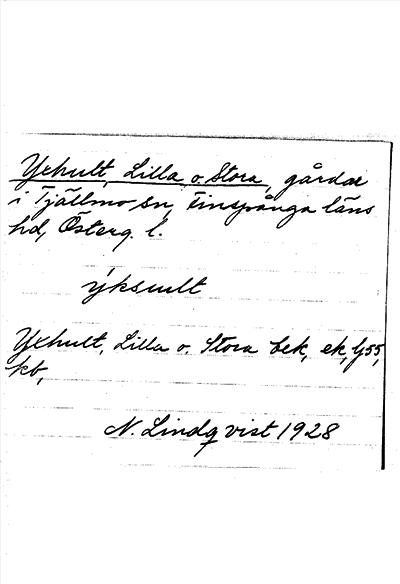 Yxhult, Lilla o. Stora, gårdar
i Tjällmo sn, Finspånga läns
hd, Österg. l.
ýksult
Yxhult, Lilla o. Stora bek, ek, lj55,
kb,
N. Lindqvist 1928